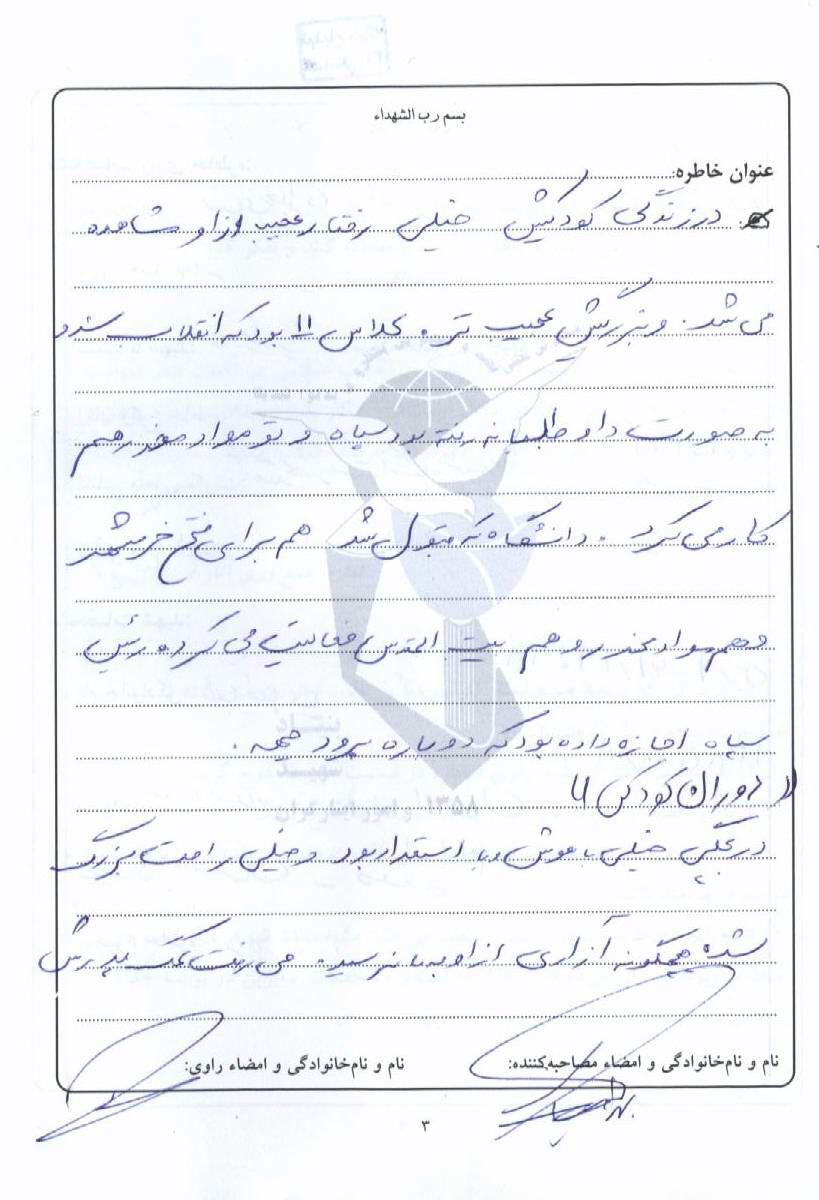 بسم رب الشهداء
عنوان خاطره:
در زندگی کودکیش خیلی رفتار عجیب از او مشاهده
می شد. و بزرگیش عجیب تر. کلاس 11 بود که انقلاب شد و
به صورت داوطلبانه رفته بود سپاه و تو مواد مخدر هم
کار می کرد. دانشگاه که قبول شد هم برای فتح خرمشهر
و هم مواد مخدر و هم بیت المقدس فعالیت می کرد. رئیس
سپاه اجازه داده بود که دوباره برود جبهه.
« دوران کودکی »
در بچگی خیلی باهوش و با استعداد بود و خیلی راحت بزرگ
شد. هیچگونه آزاری از او به ما نرسید. می رفت کمک پدرش
نام و نام‌خانوادگی و امضاء مصاحبه‌کننده:
نام و نام‌خانوادگی و امضاء راوی:
۳